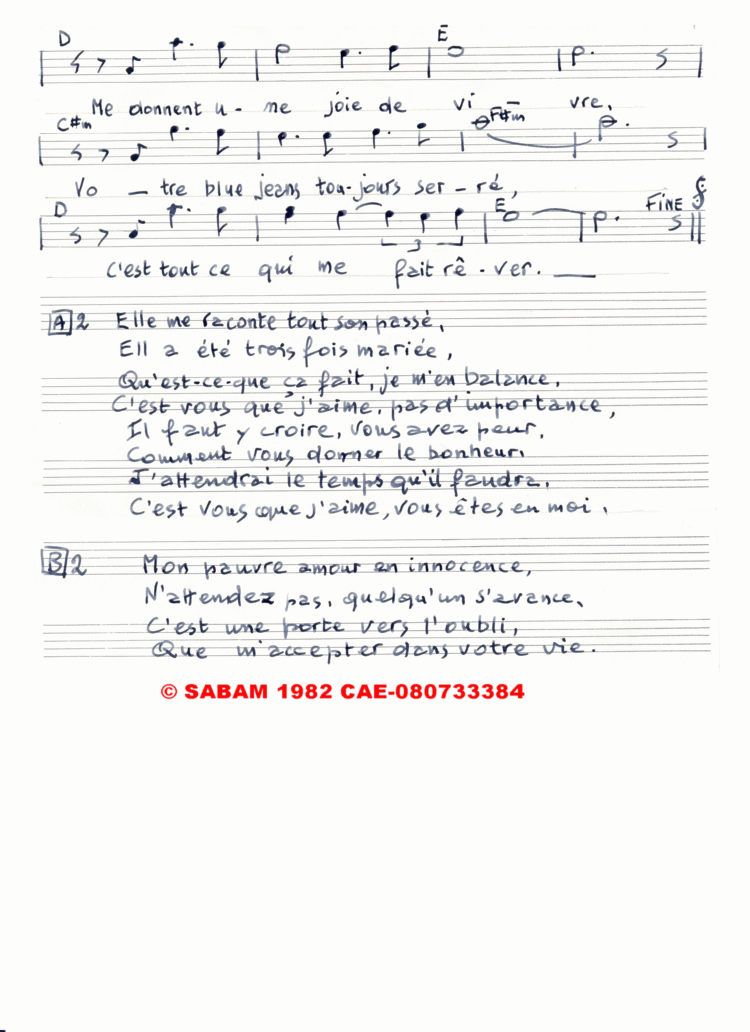 D E
Me donnent u - ne joie de vi vre,
C#m F#m
Vo - tre blue jeans tou-jours ser - ré,
D E FINE
3
C'est tout ce qui me fait rê - ver. __
A 2 Elle me raconte tout son passé,
Ell a été trois fois mariée,
Qu'est-ce-que ça fait, je m'en balance,
C'est vous que j'aime, pas d'importance,
Il faut y croire, vous avez peur,
Comment vous donner le bonheur.
J'attendrai le temps qu'il faudra,
C'est vous que j'aime, vous êtes en moi.
B 2 Mon pauvre amour en innocence,
N'attendez pas, quelqu'un s'avance,
C'est une porte vers l'oubli,
Que m'accepter dans votre vie.
© SABAM 1982 CAE-080733384